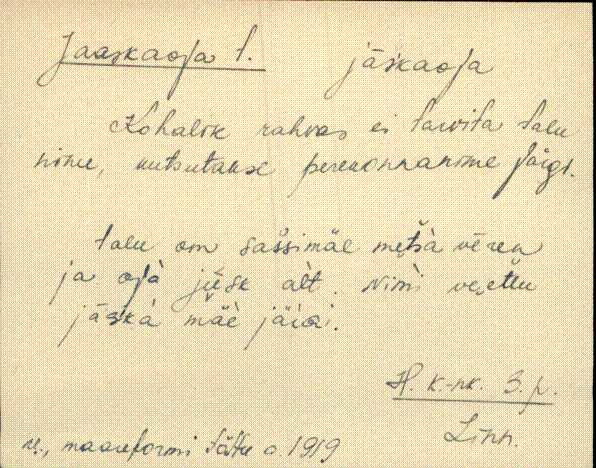 Jaaskaoja t. jäskaoja
Kohalik rahvas ei tarvita talu
nime, kutsutakse perekonnanime järgi.
talu om sašsimäe metsä vēren
ja ojà jüsk alt. Nimi veettu
jäskà mäe järgi.
H. k.-nk. 3. p.
Linn.
maareformi tättu o. 1919